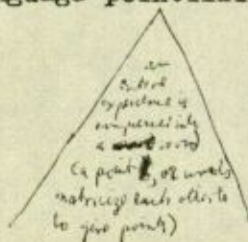 an
entire
experience is
compressed into
a word
(a point, or words
matricize each other to
to give points)